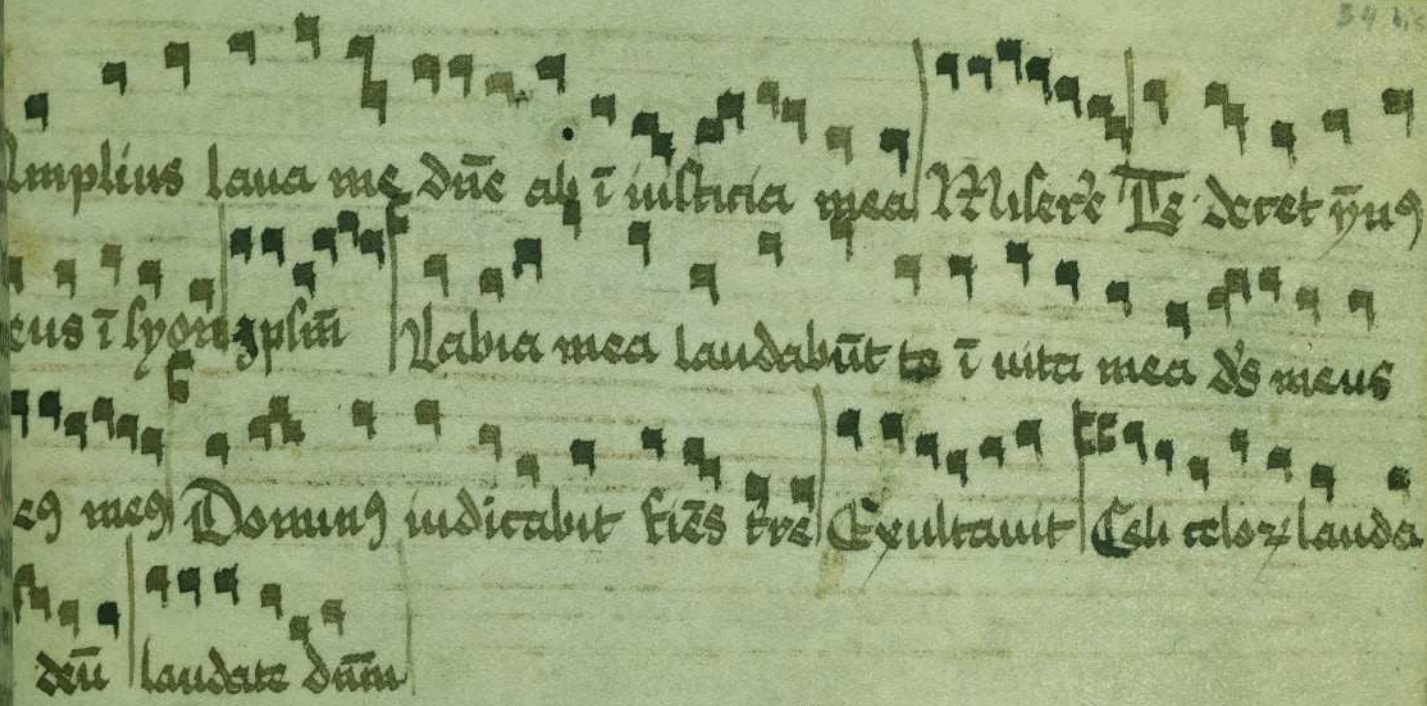 Amplius laua me dn̄e ab ī iusticia mea Misere̓ Te decet ȳnꝯ
eus ī syon psīm Labia mea laudabūt te ī uita mea ds̓ meus
eꝯ meꝯ Dominꝯ iudicabit fiēs tre̓ Exultauit Celi celoꝝ lauda
deū laudate dn̄m